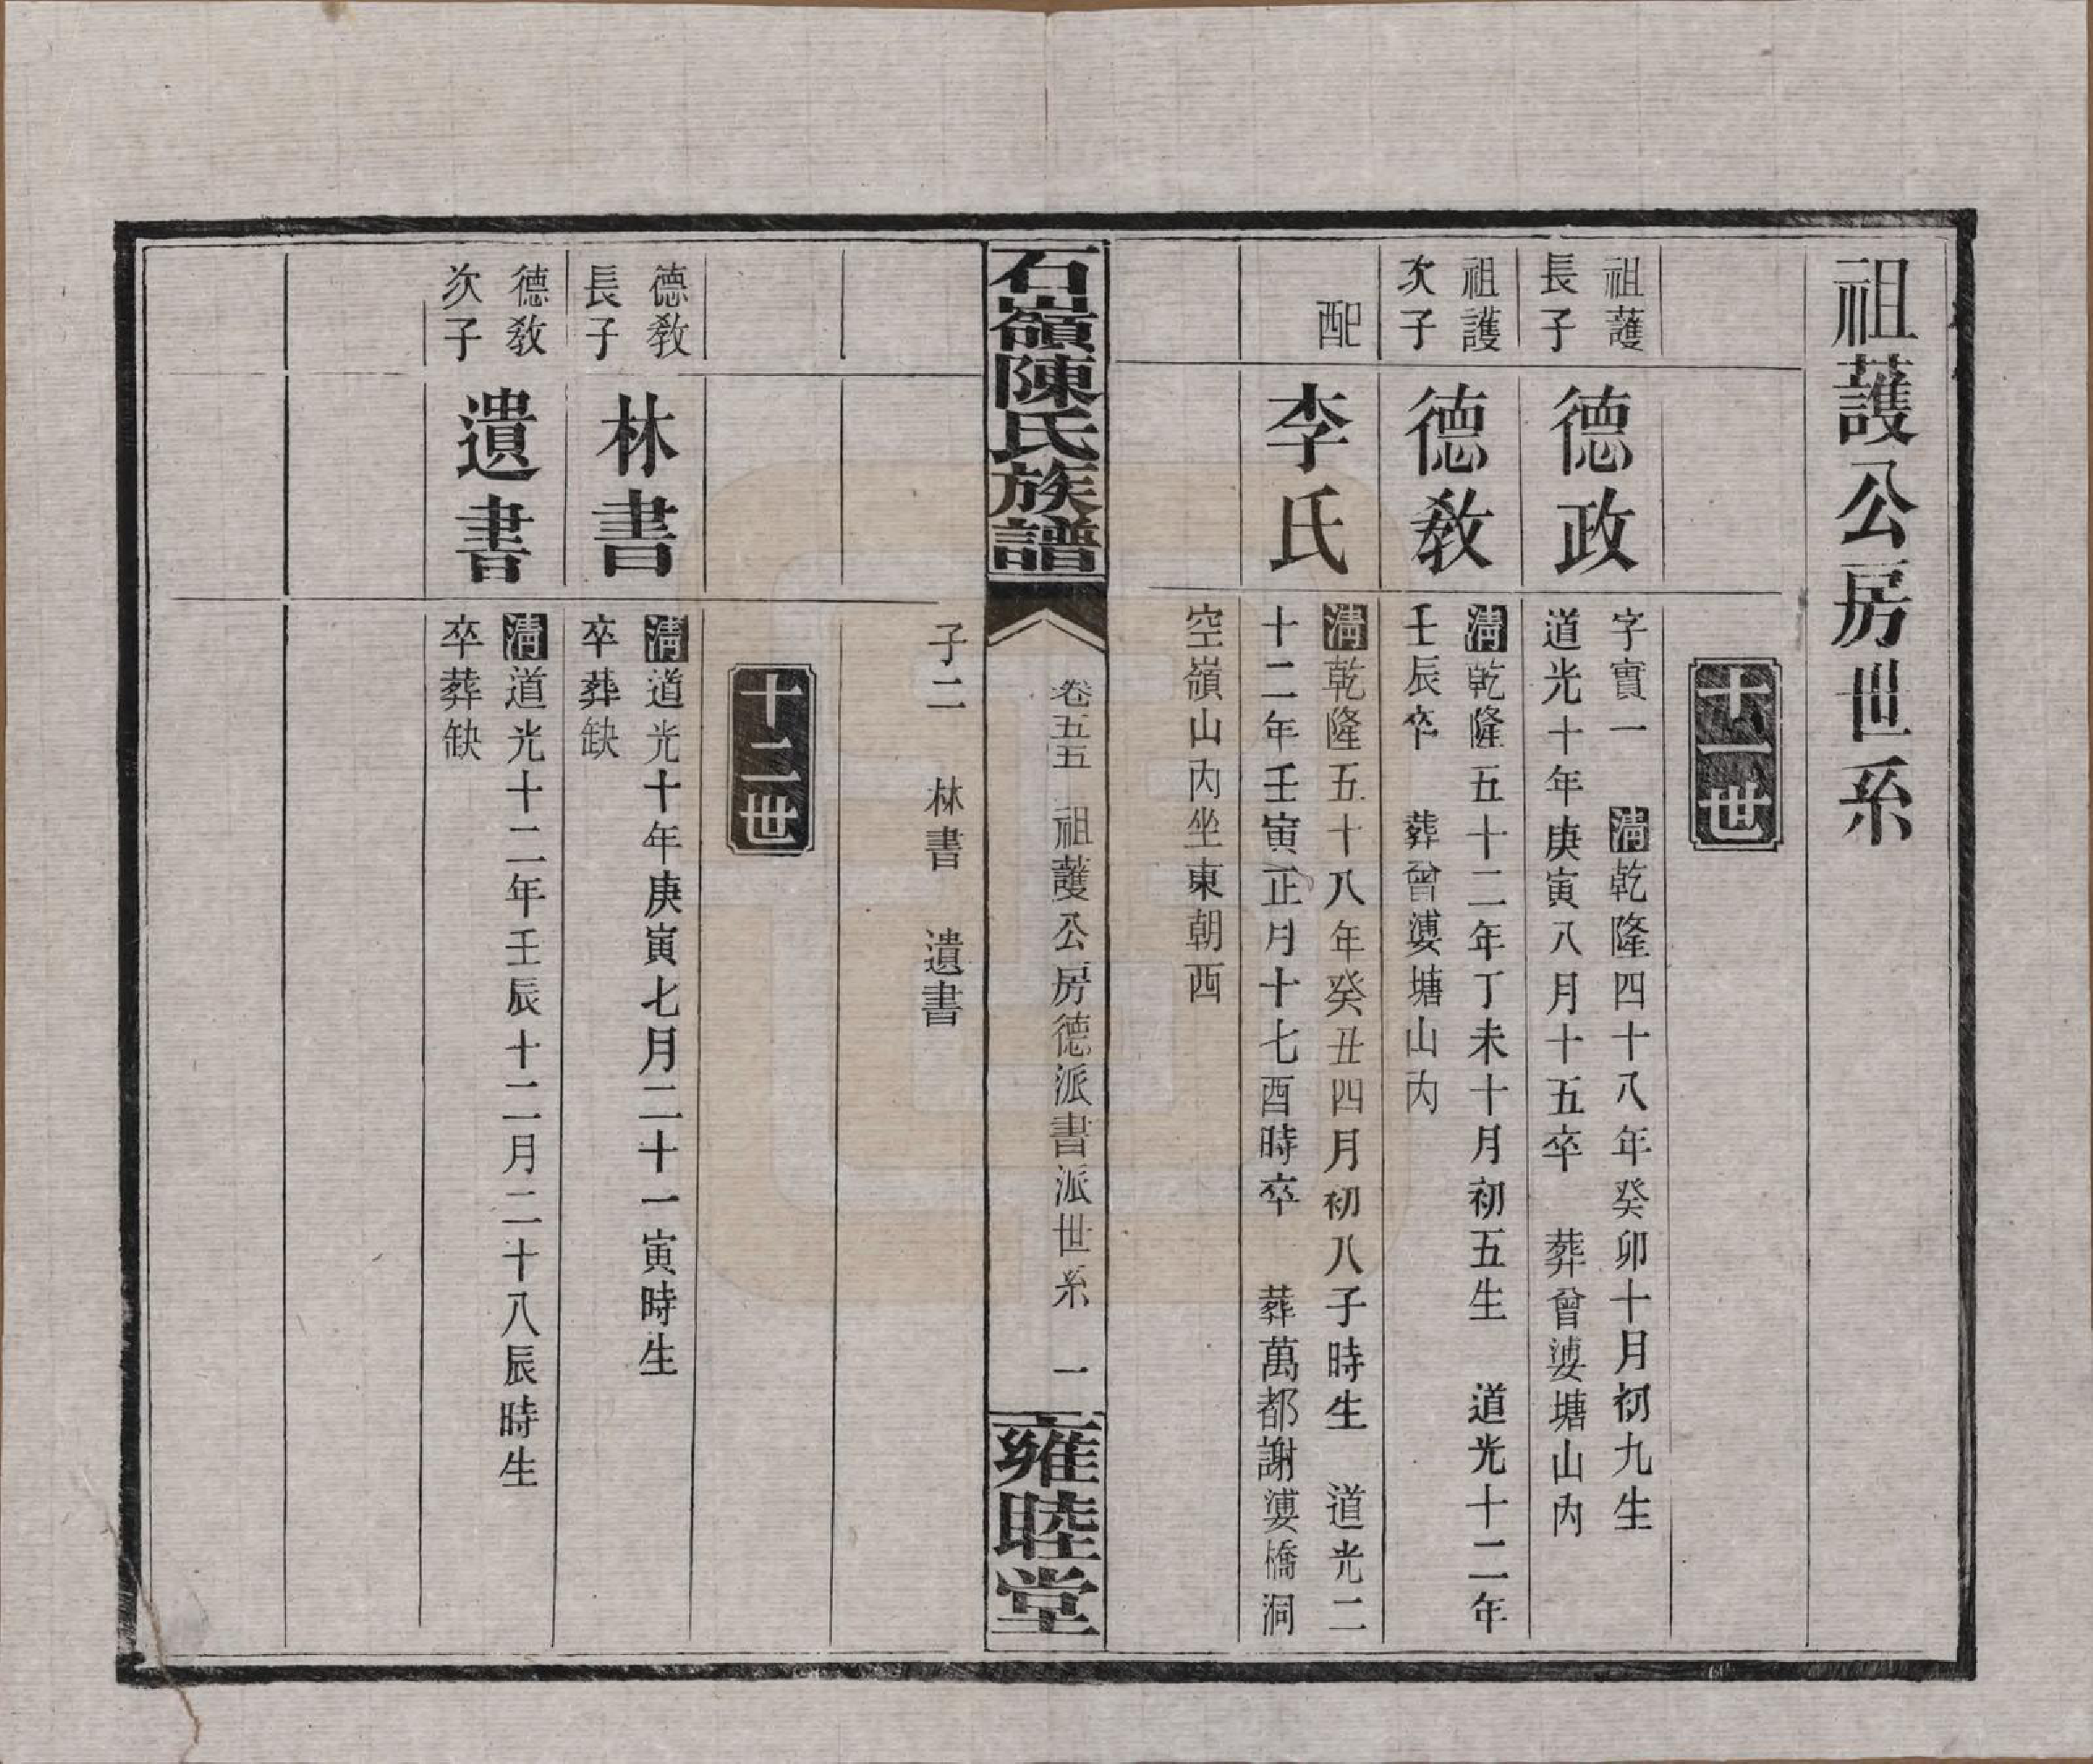 祖護公房世系
十一世
祖護
長子
德政
字實一　清乾隆四十八年癸卯十月初九生
道光十年庚寅八月十五卒　葬曾婆塘山內
祖護
次子
德敎
清乾隆五十二年丁未十月初五生　道光十二年
壬辰卒　葬曾婆塘山內
配
李氏
清乾隆五十八年癸丑四月初八子時生　道光二
十二年壬寅正月十七酉時卒　葬萬都謝婆橋洞
空嶺山內坐東朝西
石嶺陳氏族譜
卷五五　祖護公房德派書派世系　一
雍睦堂
子二　林書　遺書
十二世
德敎
長子
林書
清道光十年庚寅七月二十一寅時生
卒葬缺
德敎
次子
遺書
清道光十二年壬辰十二月二十八辰時生
卒葬缺